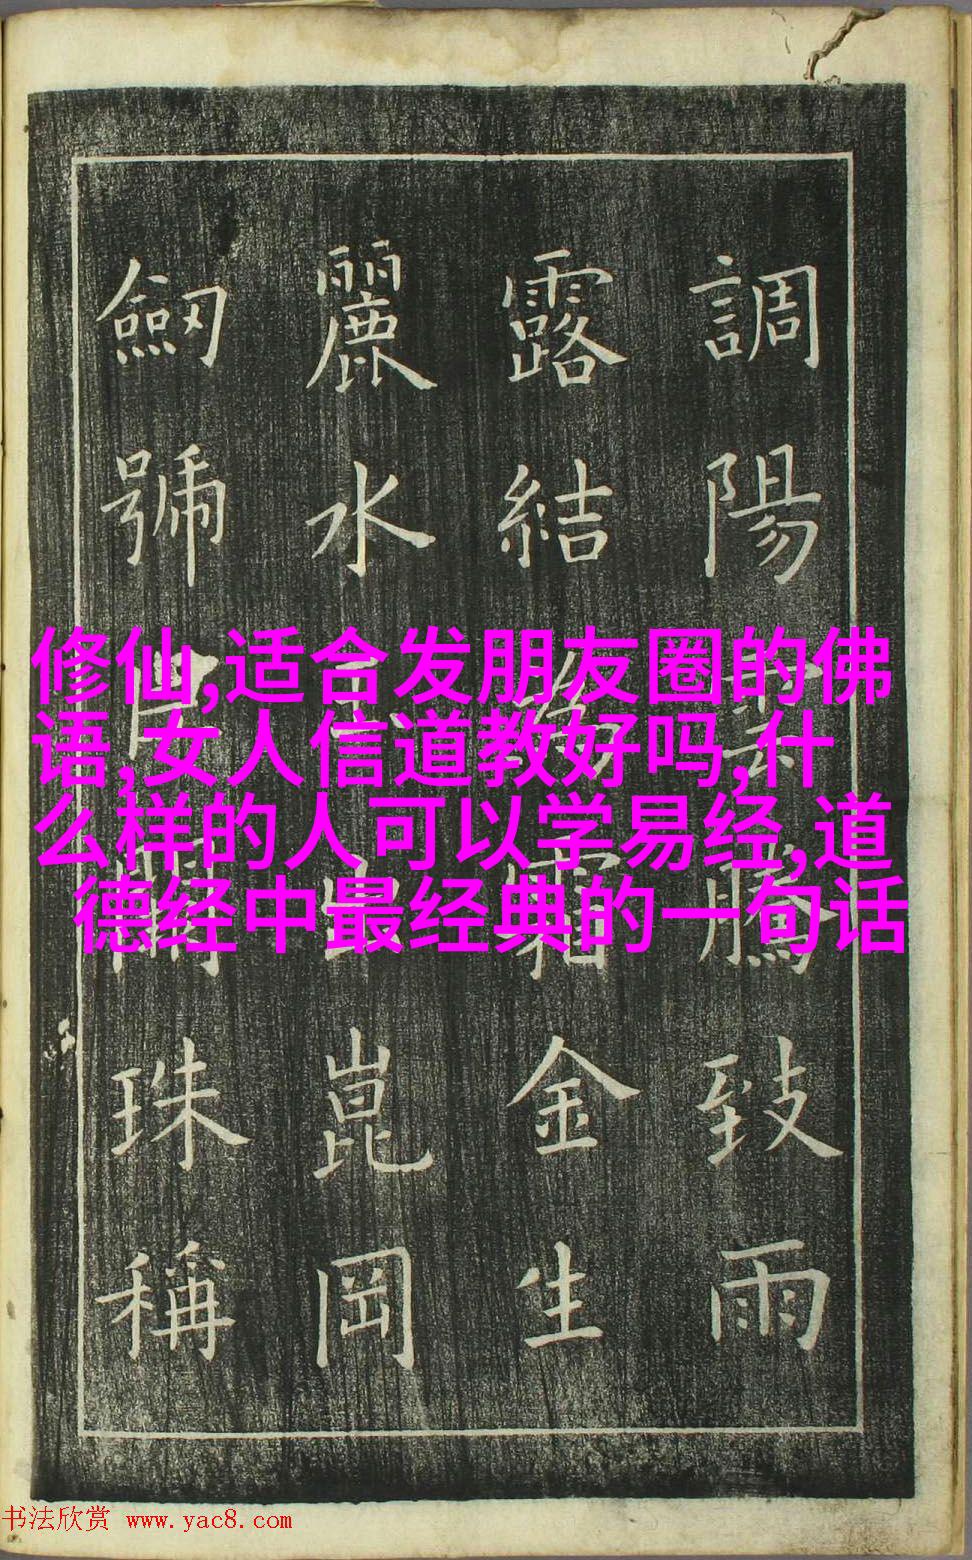 調陽雲騰致雨
露結為霜金生
麗水玉出崑岡
劒號巨闕珠稱
修仙,适合发朋友圈的佛
语,女人信道教好吗,什
么样的人可以学易经,道
德经中最经典的一句话
书法欣赏 www.yac8.com